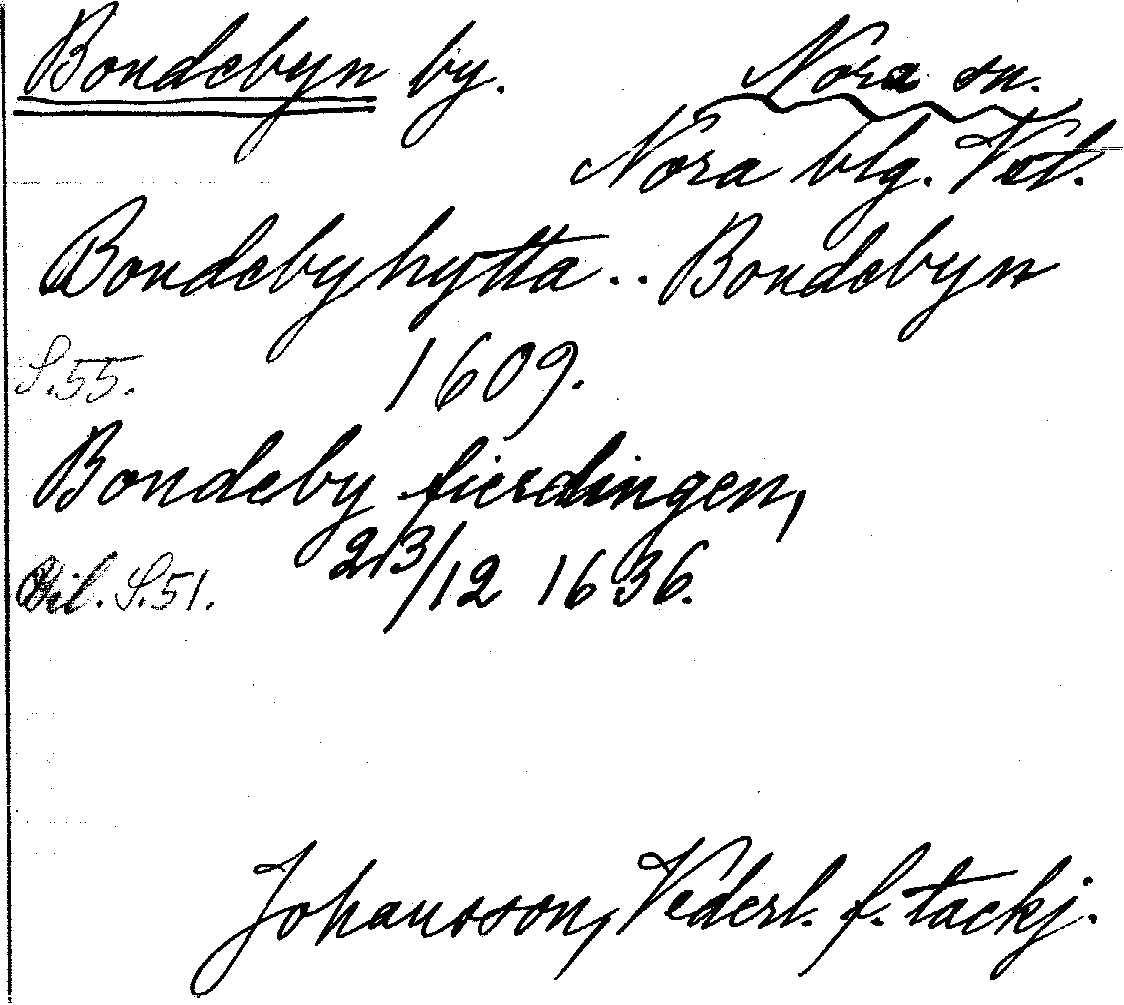 Bondebyn by. Nora sn.
Nora blg. Vstl.
Bondebyhytta .. Bondebyn
S.55. 1609.
Bondeby fierdingen,
Bil. S.51. 23/12 1636.
Johansson, Vederl. f. tackj.